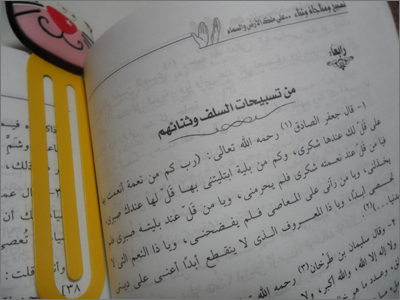 تسبيح ومناجاة وثناء .. على ملك الأرض والسماء
رابعاً:
من تسبيحات السلف وثنائهم
١- قال جعفر الصادق (١) رحمه الله تعالى: (رب كم من نعمة أنعمت بها
على قلَّ لك عندها شكري، وكم من بلية ابتليتني بها قلَّ لها عندك صبري
فيا من قلَّ عند نعمته شكري فلم يحرمني، ويا من قل عند بليته صبري فلم
يخذلني، ويا من رآني على المعاصي فلم يفضحني، ويا ذا النعم التي لا
تحصى أبداً، ويا ذا المعروف الذي لا ينقطع أبداً أعني على ديني
(٢)
٢- وقال سليمان بن طرخان (٣) رحمه الله
ولا إله إلا الله، والله أكبر،
٣- قال
وأنت قلت:
٢٣٨